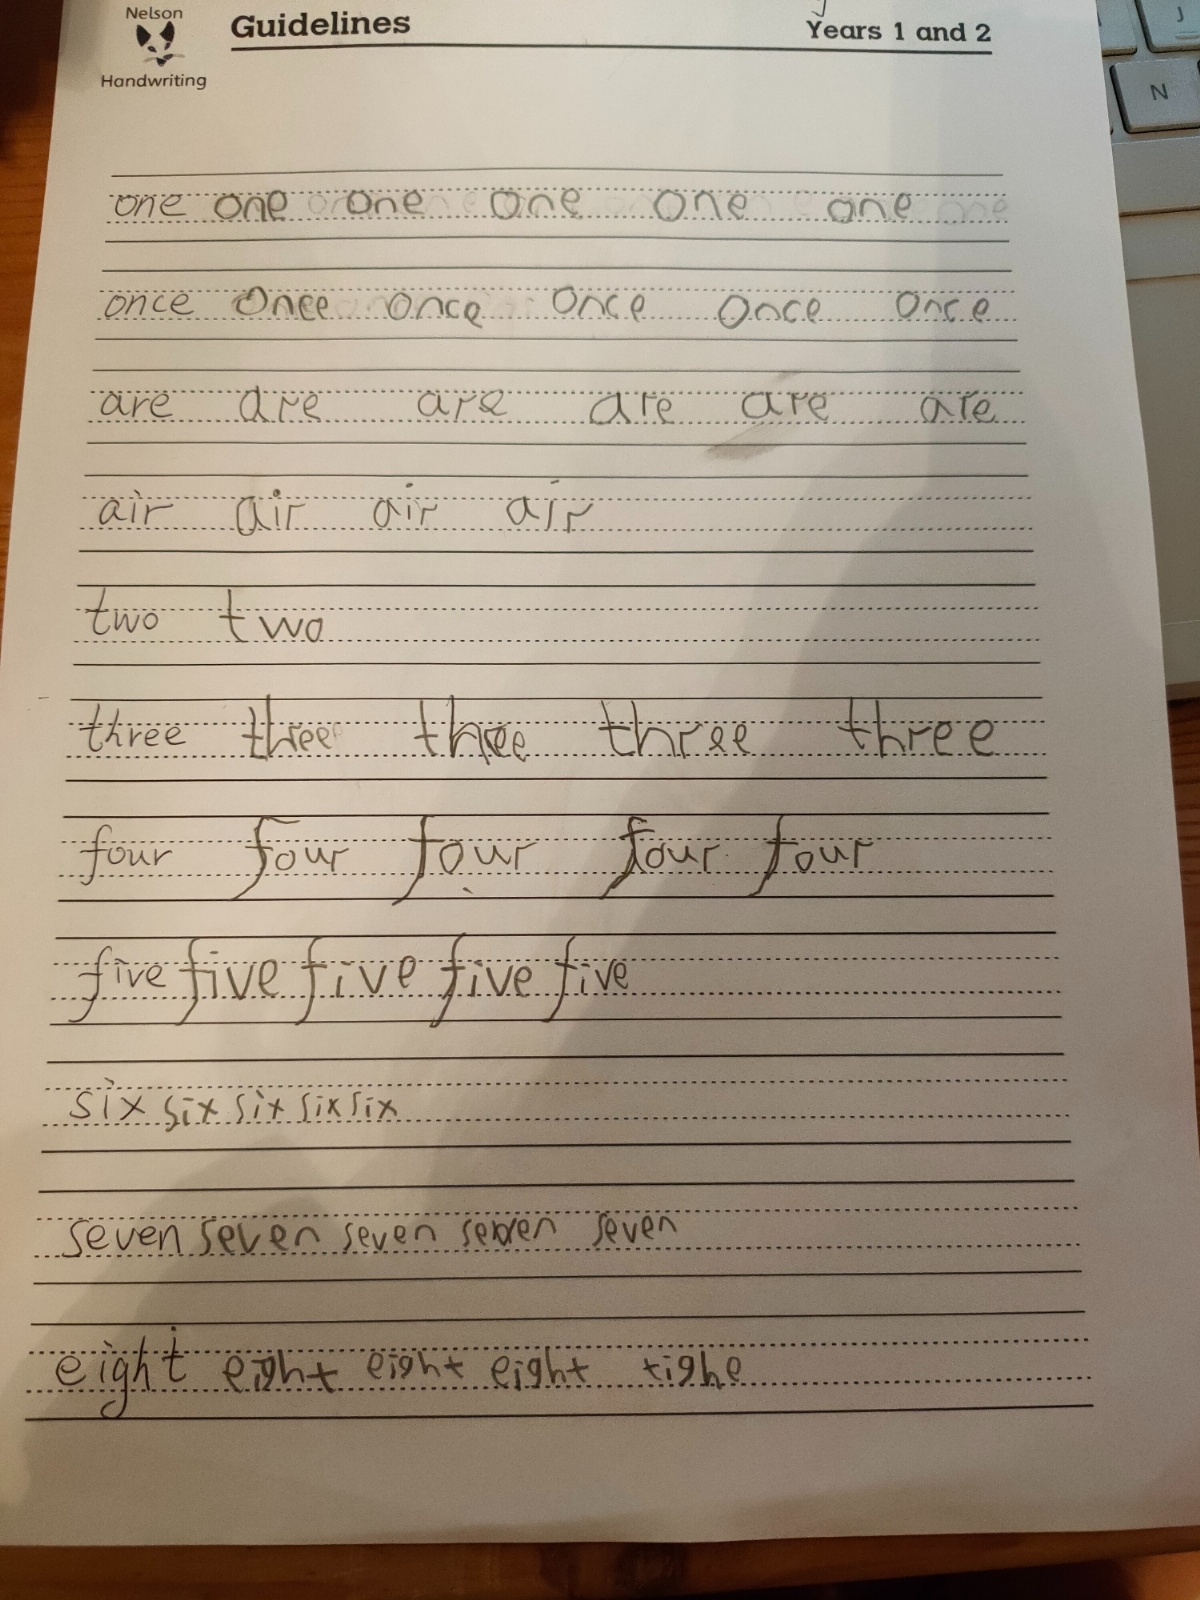 Nelson
Handwriting
Guidelines
Years 1 and 2
J
N
one one one one one one
once once once once once once
are are are are are are
air air air air
two two
three three three three three
four four four four four
five five five five five
six six six six six
seven seven seven seven seven
eight eight eight eight tighe